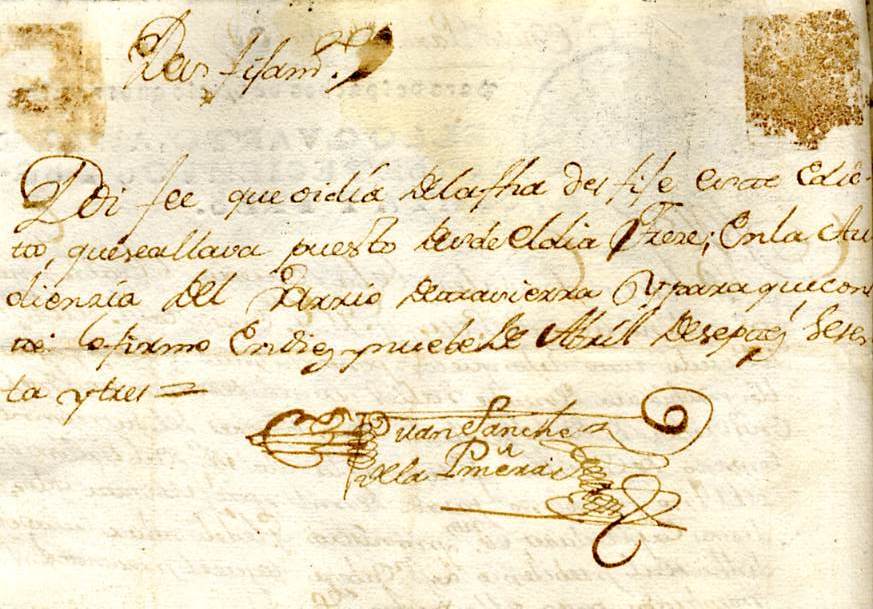 Desfijam.to
Doi fee que oi dia de la fha desfije este Edic-
to, que se allava puesto desde el dia Treze; En la Au
diencia del Varrio de Y para que cons
te lo firmo En diez y nuebe de Abril de setez.s Sesen
ta y tres =
Juan Sanche
de la